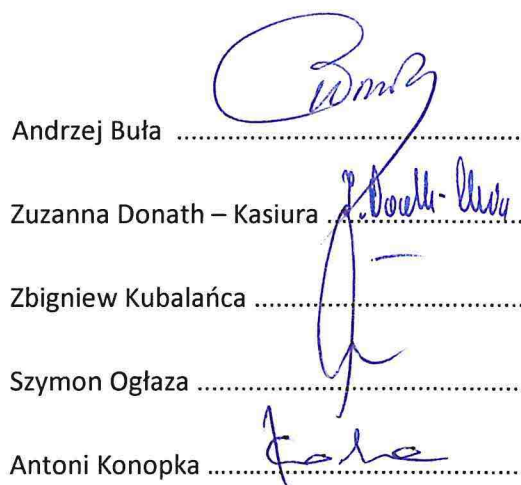 Andrzej Buła ........................................................
Zuzanna Donath – Kasiura ................................
Zbigniew Kubalańca ............................................
Szymon Ogłaza .....................................................
Antoni Konopka ...................................................